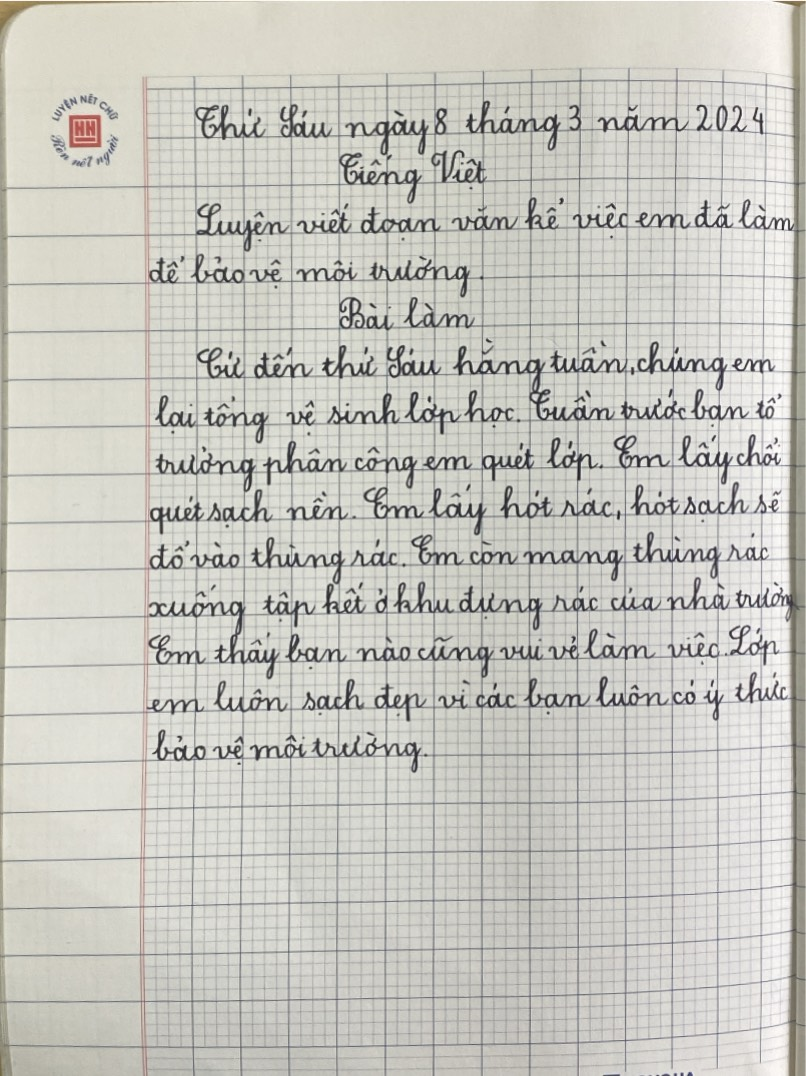 LUYỆN NÉT CHỮ
HN
Rèn nết người
Thứ Sáu ngày 8 tháng 3 năm 2024
Tiếng Việt
Luyện viết đoạn văn kể việc em đã làm
để bảo vệ môi trường.
Bài làm
Cứ đến thứ Sáu hằng tuần, chúng em
lại tổng vệ sinh lớp học. Tuần trước bạn tổ
trưởng phân công em quét lớp. Em lấy chổi
quét sạch nền. Em lấy hót rác, hót sạch sẽ
đổ vào thùng rác. Em còn mang thùng rác
xuống tập kết ở khu đựng rác của nhà trường
Em thấy bạn nào cũng vui vẻ làm việc. Lớp
em luôn sạch đẹp vì các bạn luôn có ý thức
bảo vệ môi trường.